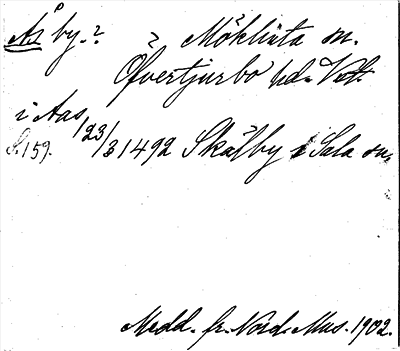 Ås by.? ? Möklinta sn.
Öfvertjurbo hd. Vstm.
i Aas 23/3 1492 Skälby i Sala sn,
S. 159.
Medd. fr. Nord. Mus. 1902.